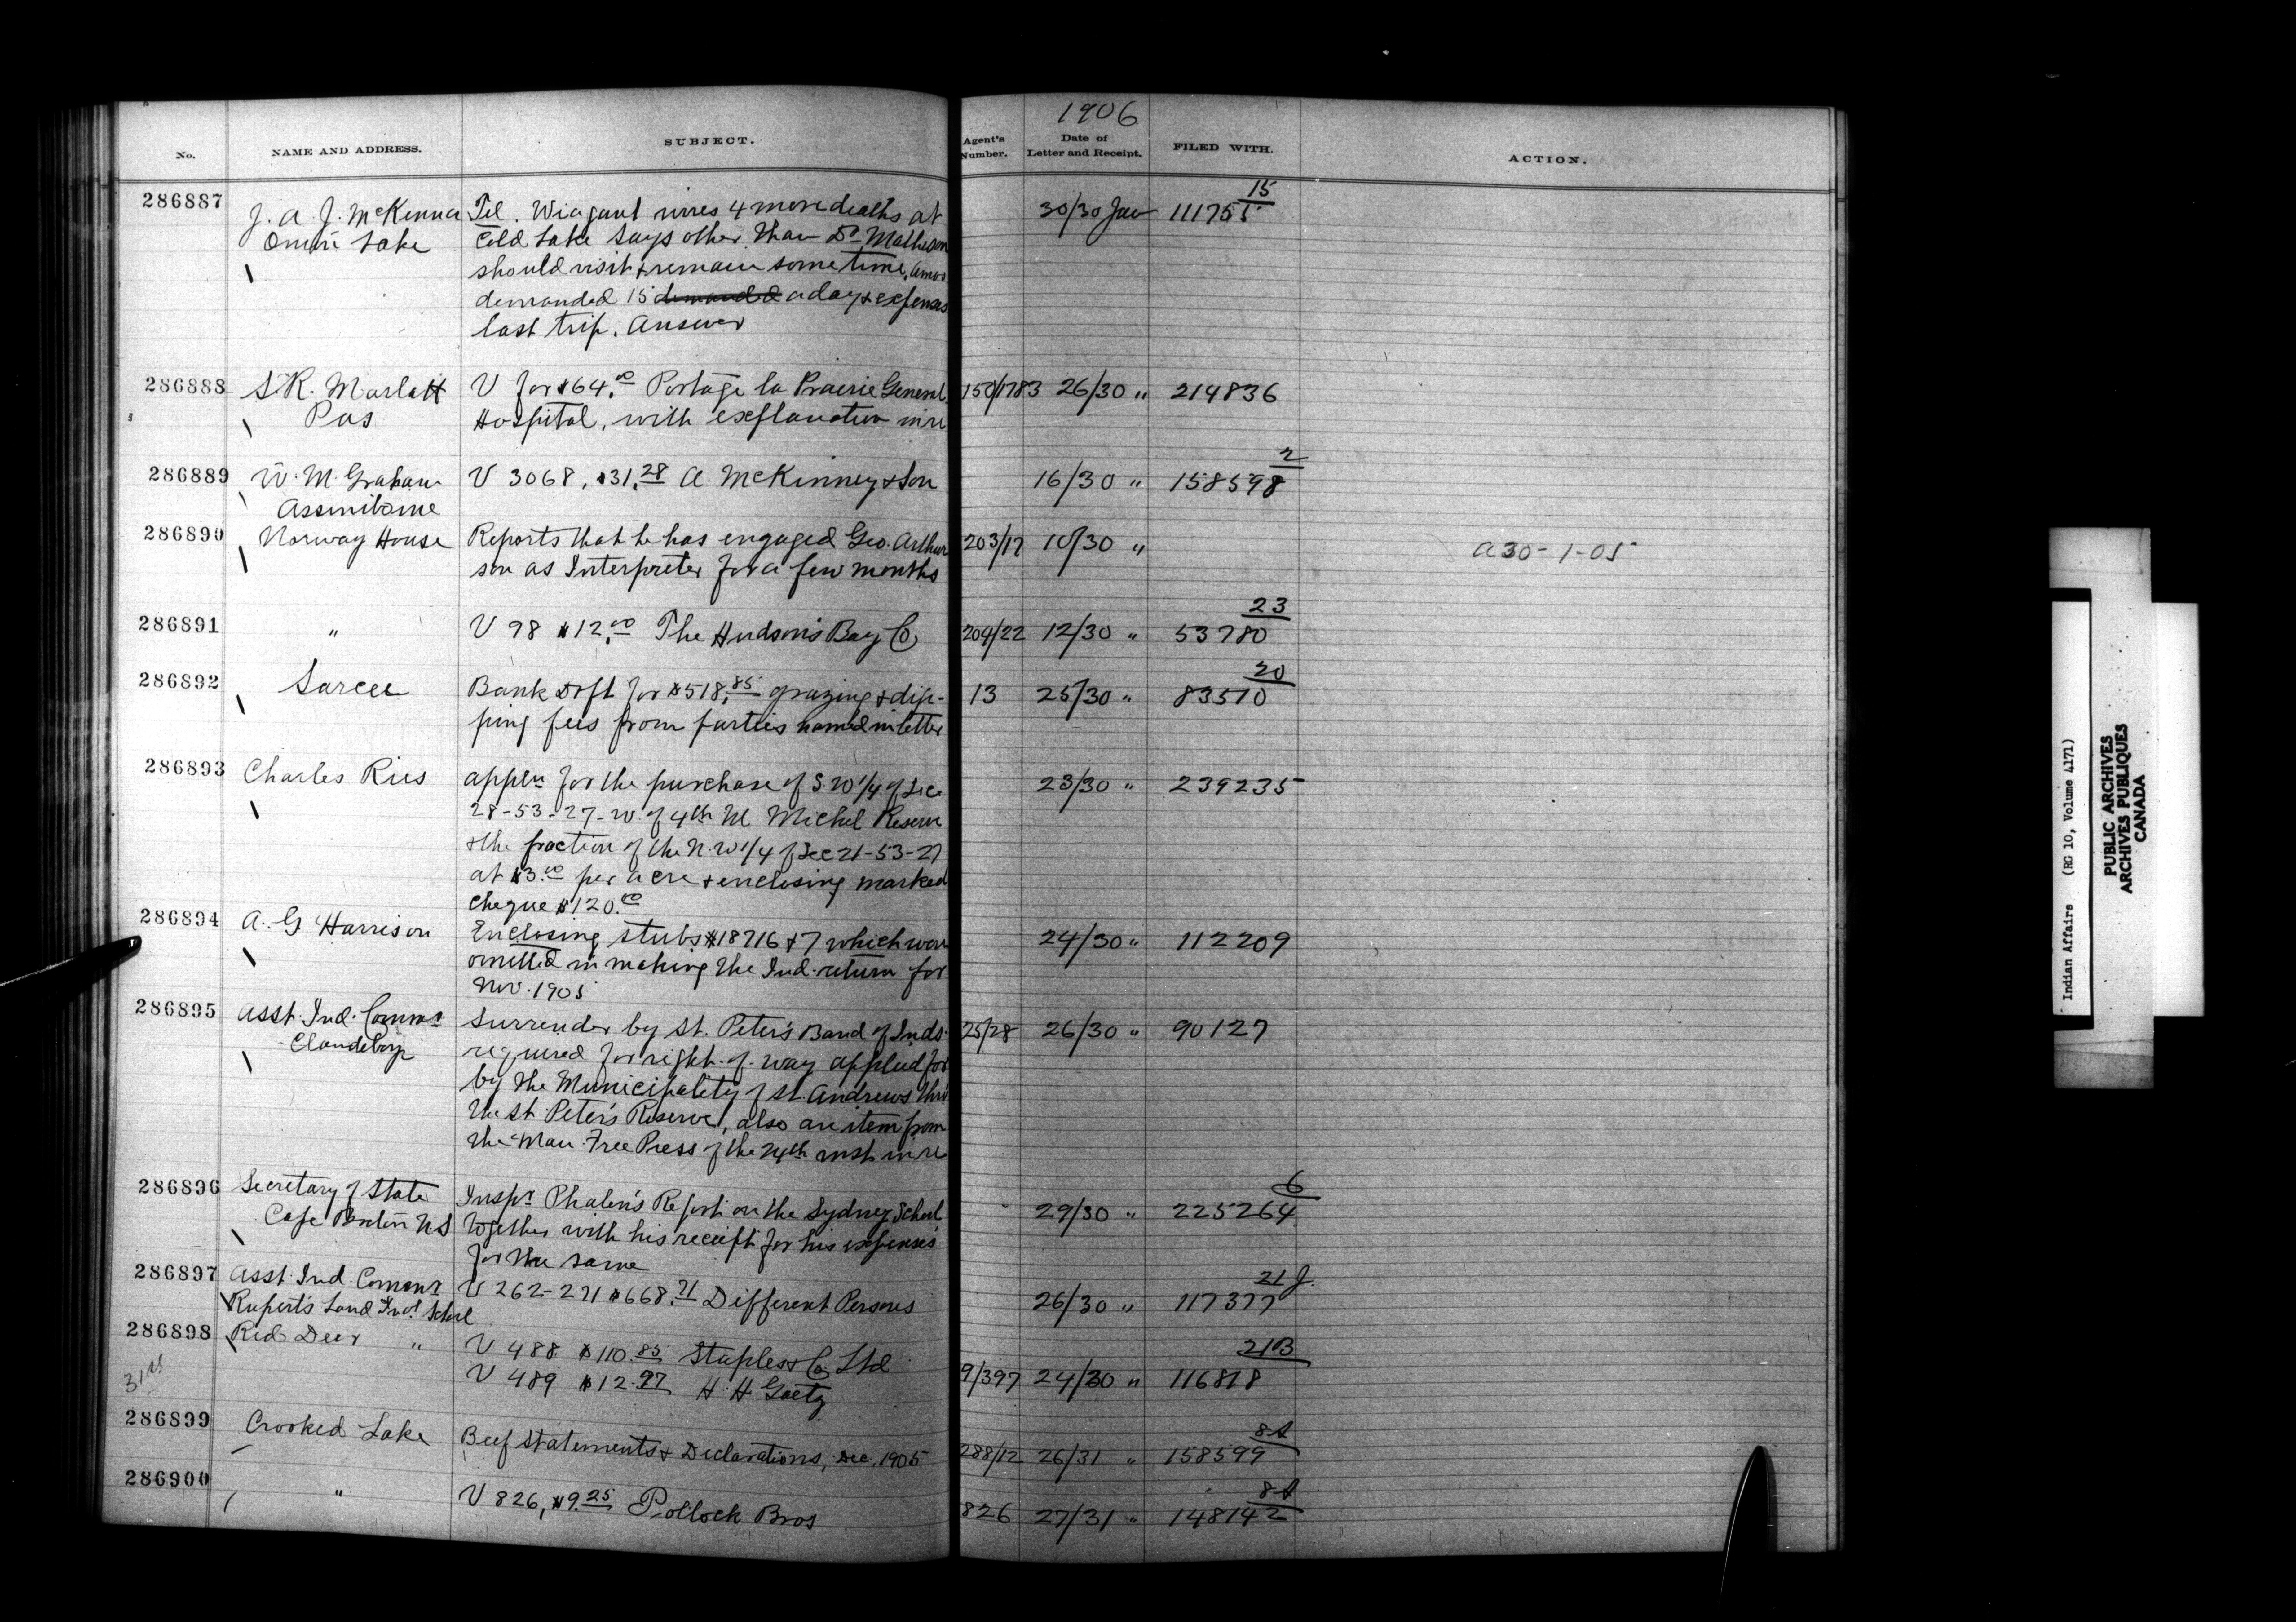 1906
No. NAME AND ADDRESS. SUBJECT. Agent's Number. Date of Letter and Receipt. FILED WITH. ACTION.
286887 J. A. J. McKenna Tel. Wiagant wires 4 more deaths at 30/30 Jan 111755 15
Onion Lake Cold Lake says other than Dr Matheson
should visit & remain some time, Amos
demanded 15 demanded a day & expenses
last trip. Answer
286888 S. R. Marlatt V for $64.00 Portage la Prairie General 150/1783 26/30 " 214836
Pas Hospital, with explanation in re
286889 W. M. Graham V 3068, $31.28 A. McKinney & Son 16/30 " 158598 2
Assiniboine
286890 Norway House Reports that he has engaged Geo. Arthur 203/17 10/30 " A 30-1-05
son as Interpreter for a few months
286891 " V 98 $12.00 The Hudson's Bay Co 204/22 12/30 " 53780 23
286892 Sarcee Bank Dft for $518.85 grazing & dip- 13 25/30 " 83510 20
ping fees from parties named in letter
286893 Charles Ries appln for the purchase of S.W 1/4 of Sec 23/30 " 239235
28-53-27-W. of 4th M Michel Reserve
& the fraction of the N.W 1/4 of Sec 21-53-27
at $3.00 per acre & enclosing marked
cheque $120.00
286894 A. G Harrison Enclosing stubs #18716 & 7 which were 24/30 " 112209
omitted in making the Ind. return for
Nov. 1905
286895 Asst. Ind. Commr Surrender by St. Peter's Band of Inds. 25/28 26/30 " 90127
Clandeboye required for right-of-way applied for
by the Municipality of St. Andrews thro'
the St. Peter's Reserve, also an item from
the Man. Free Press of the 24th inst in re
286896 Secretary of State Inspr Phalen's Report on the Sydney School 29/30 " 225264 6
Cape Breton N S together with his receipt for his expenses
for the same
286897 Asst. Ind. Commr V 262-271 $668.71 Different Persons 26/30 " 117377 21 J.
Rupert's Land Indl. School
286898 Red Deer " V 488 $110.85 Staples & Co Ltd 21B
31st V 489 $12.97 H. H. Gaetz 9/397 24/30 " 116818
286899 Crooked Lake Beef Statements & Declarations, Dec. 1905 288/12 26/31 " 158599
286900 " V 826, $9.25 Pollock Bros 826 27/31 " 148142
Indian Affairs (RG 10, Volume 4171)
PUBLIC ARCHIVES
ARCHIVES PUBLIQUES
CANADA